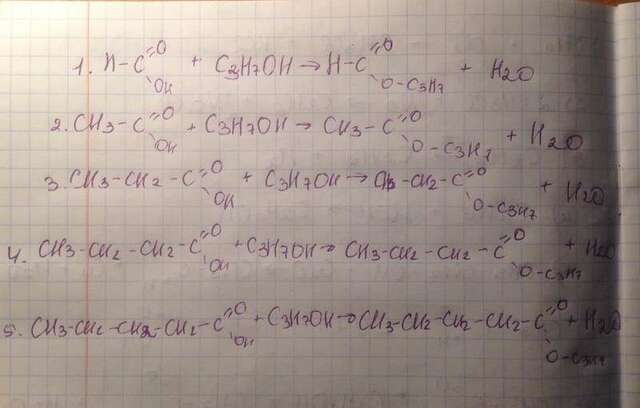 1. H-C(=O)(OH) + C3H7OH → H-C(=O)(O-C3H7) + H2O
2. CH3-C(=O)(OH) + C3H7OH → CH3-C(=O)(O-C3H7) + H2O
3. CH3-CH2-C(=O)(OH) + C3H7OH → CH3-CH2-C(=O)(O-C3H7) + H2O
4. CH3-CH2-CH2-C(=O)(OH) + C3H7OH → CH3-CH2-CH2-C(=O)(O-C3H7) + H2O
5. CH3-CH2-CH2-CH2-C(=O)(OH) + C3H7OH → CH3-CH2-CH2-CH2-C(=O)(O-C3H7) + H2O